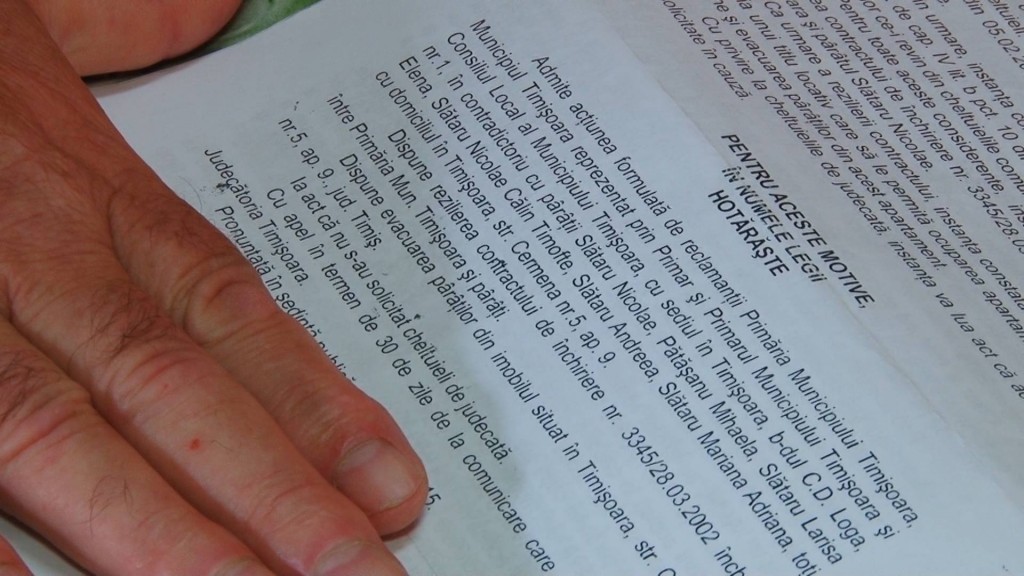 din 05.02.2
în urmare, instanța
de cap. IV lit. b pct. 10 d
lor ce-i revin din cheltuielile co
Pentru toate aceste considerente, ins
contractului de închiriere nr. 3345/28.0
ra și pârâtul Slătaru Nicolae.
Ca urmare a rezilierii contractului, instanța constat
la unui titlu locativ care să le permită ocuparea aparta
ne și evacuarea pârâților din acest apartament.
Cu privire la cheltuielile de judecată, instanța va lua act că a
solicitate în cauză.
PENTRU ACESTE MOTIVE,
ÎN NUMELE LEGII
HOTĂRĂȘTE
Admite acțiunea formulată de reclamanții Primăria Municipiului Timișoara,
Municipiul Timișoara reprezentat prin Primar și Primarul Municipiului Timișoara și
Consiliul Local al Municipiului Timișoara, cu sediul în Timișoara, b-dul C.D. Loga,
nr.1, în contradictoriu cu pârâții Slătaru Nicolae, Pătășanu Mihaela, Slătaru Larisa
Elena, Slătaru Nicolae Călin Timofte, Slătaru Andreea, Slătaru Mariana Adriana, toți
cu domiciliul în Timișoara, str. Cermena nr.5, ap. 9.
Dispune rezilierea contractului de închiriere nr. 3345/28.03.2002 înch
între Primăria Mun. Timișoara și pârâți.
Dispune evacuarea pârâților din imobilul situat în Timișoara, str. C
nr.5, ap. 9., jud. Timiș.
Ia act că nu s-au solicitat cheltuieli de judecată.
Cu apel în termen de 30 de zile de la comunicare care
Judecătoria Timișoara.
Pronunțată în ședință